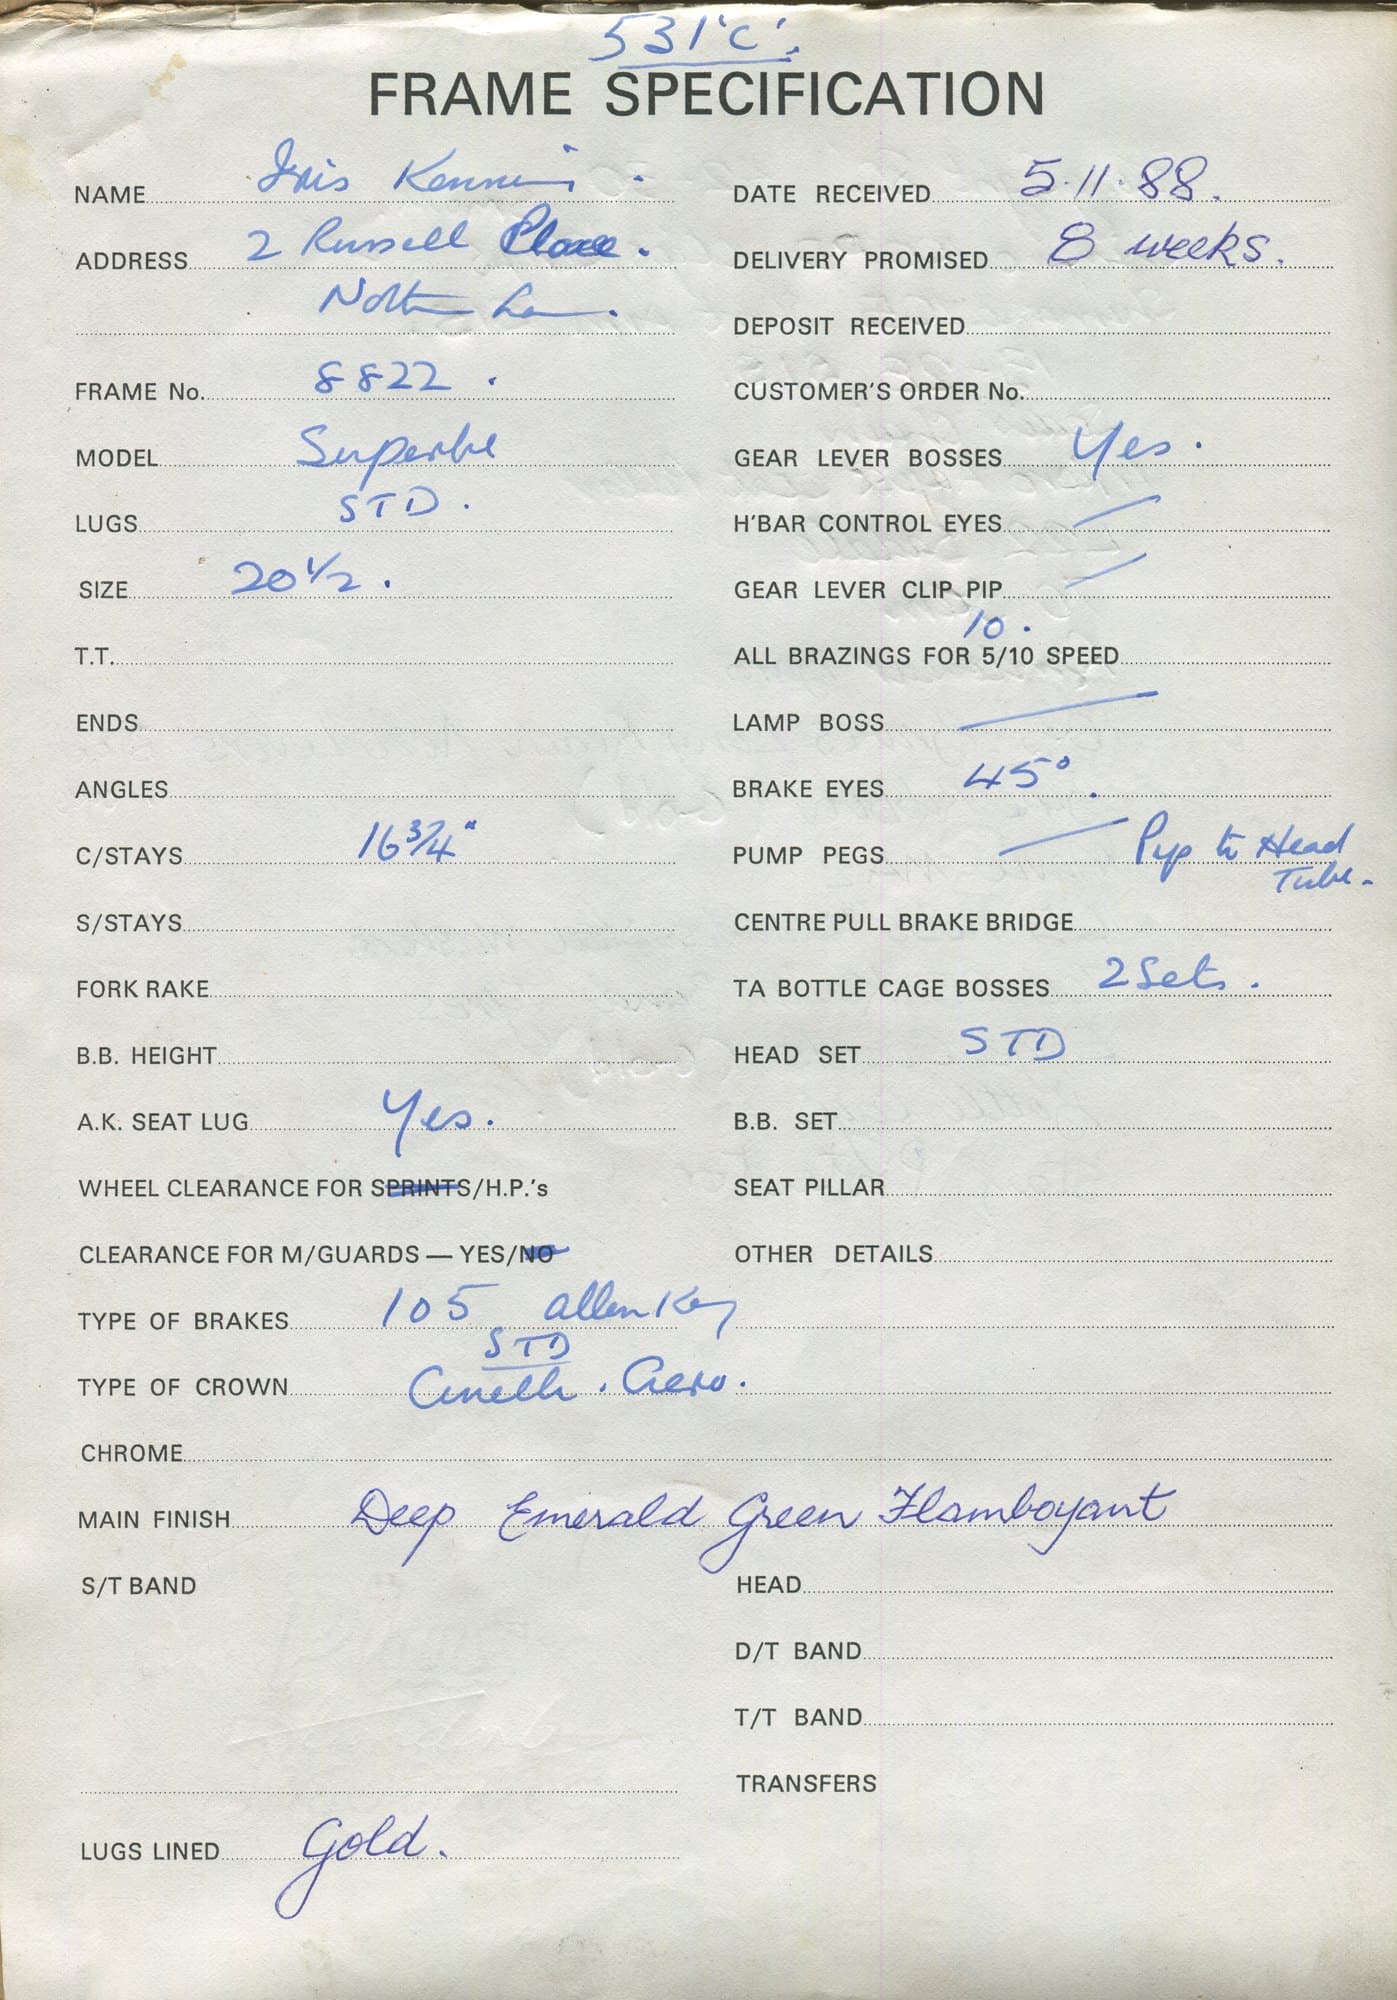 531 'C'.
FRAME SPECIFICATION
NAME Iris
ADDRESS 2 Russell Place.
FRAME No. 8822.
MODEL Superbe
LUGS STD.
SIZE 20 1/2.
T.T.
ENDS
ANGLES
C/STAYS 16 3/4"
S/STAYS
FORK RAKE
B.B. HEIGHT
A.K. SEAT LUG Yes.
WHEEL CLEARANCE FOR SPRINTS/H.P.'s
CLEARANCE FOR M/GUARDS — YES/NO
TYPE OF BRAKES 105 Allen Key
STD
TYPE OF CROWN Cinelli. Aero.
CHROME
MAIN FINISH Deep Emerald Green Flamboyant
S/T BAND
LUGS LINED Gold.
DATE RECEIVED 5.11.88.
DELIVERY PROMISED 8 weeks.
DEPOSIT RECEIVED
CUSTOMER'S ORDER No.
GEAR LEVER BOSSES Yes.
H'BAR CONTROL EYES /
GEAR LEVER CLIP PIP /
10.
ALL BRAZINGS FOR 5/10 SPEED
LAMP BOSS /
BRAKE EYES 45°.
PUMP PEGS / Pip to Head
Tube.
CENTRE PULL BRAKE BRIDGE
TA BOTTLE CAGE BOSSES 2 Sets.
HEAD SET STD
B.B. SET
SEAT PILLAR
OTHER DETAILS
HEAD
D/T BAND
T/T BAND
TRANSFERS